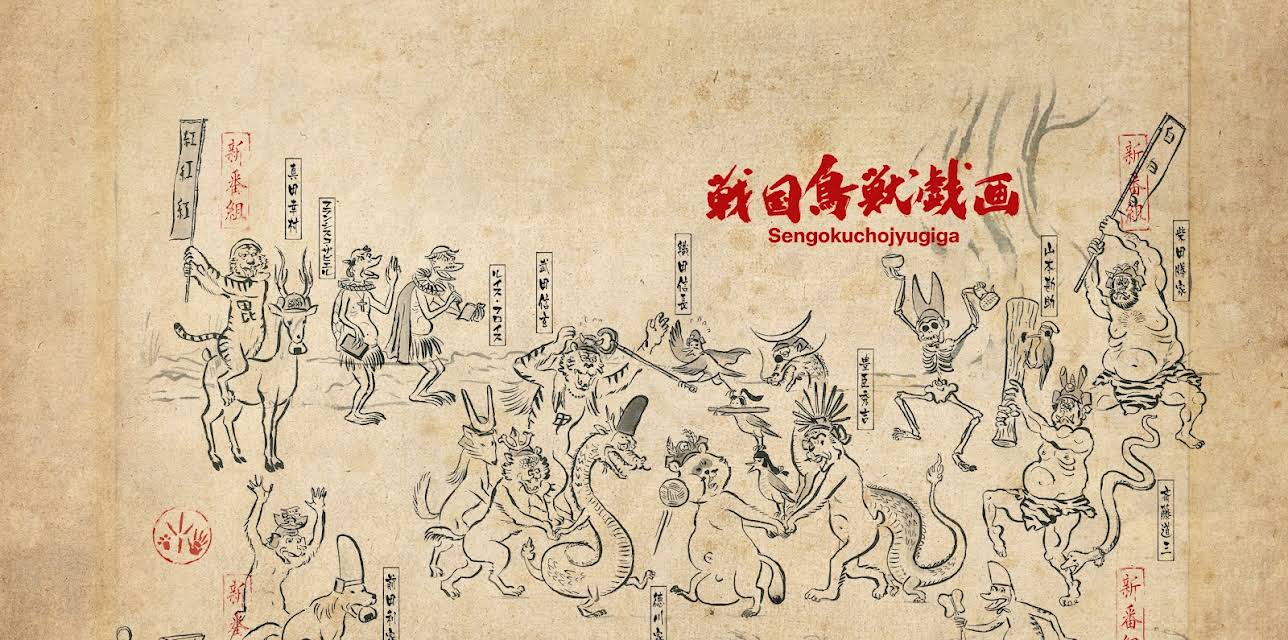 戦国鳥獣戯画
Sengokuchojyugiga
紅紅紅
新番組
真田幸村
フランシスコ・ザビエル
毘
ルイス・フロイス
武田信玄
甲
織田信長
豊臣秀吉
山本勘助
新番組
柴田勝家
新番
前田利家
徳川家
新番